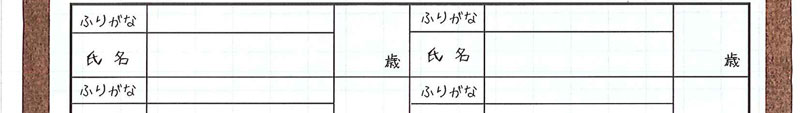 ふりがな ふりがな
氏名 歳 氏名 歳
ふりがな ふりがな